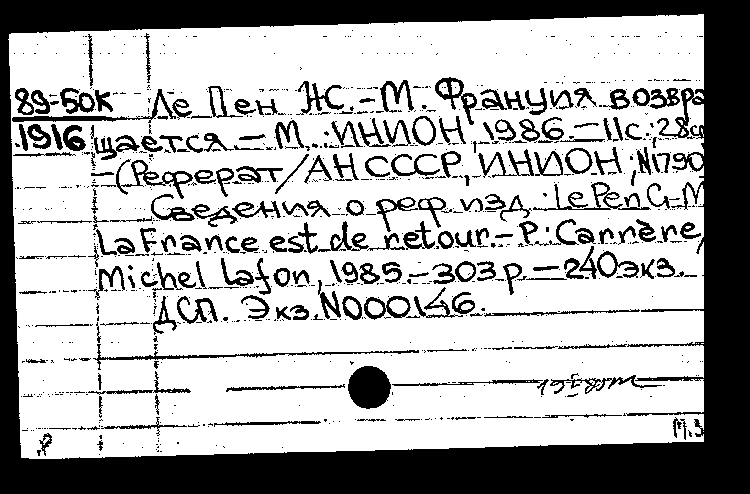 89-50К Ле Пен Ж.-М. Франция возвра
1916 щается.-М.:ИНИОН,1986.-11с.;28см
-(Реферат/АН СССР, ИНИОН;N1790
Сведения о реф.изд.:Le Pen G-M
La France est de retour.-P.:Carrère,
Michel Lafon,1985.-303p.-240экз.
ДСП. Экз.N000146.
М.З